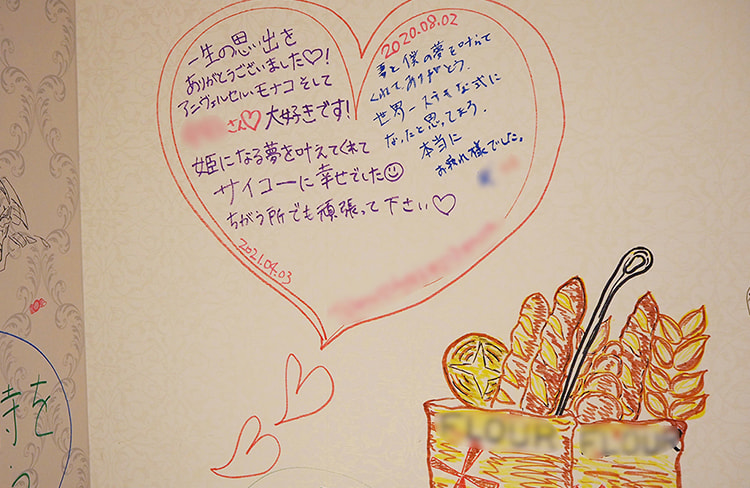 一生の思い出を
ありがとうございました♡!
アニヴェルセル・モナコ そして
さん♡大好きです!
姫になる夢を叶えてくれて
サイコーに幸せでした☺
ちがう所でも頑張って下さい♡
2021.04.03
2020.08.02
妻と僕の夢を叶えて
くれてありがとう。
世界一ステキな式に
なったと思ってます。
本当に
お疲れ様でした。
FLOUR
FLOUR
寺を